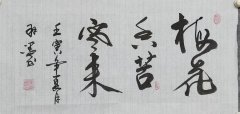 梅花
香苦
寒来
壬寅年夏月